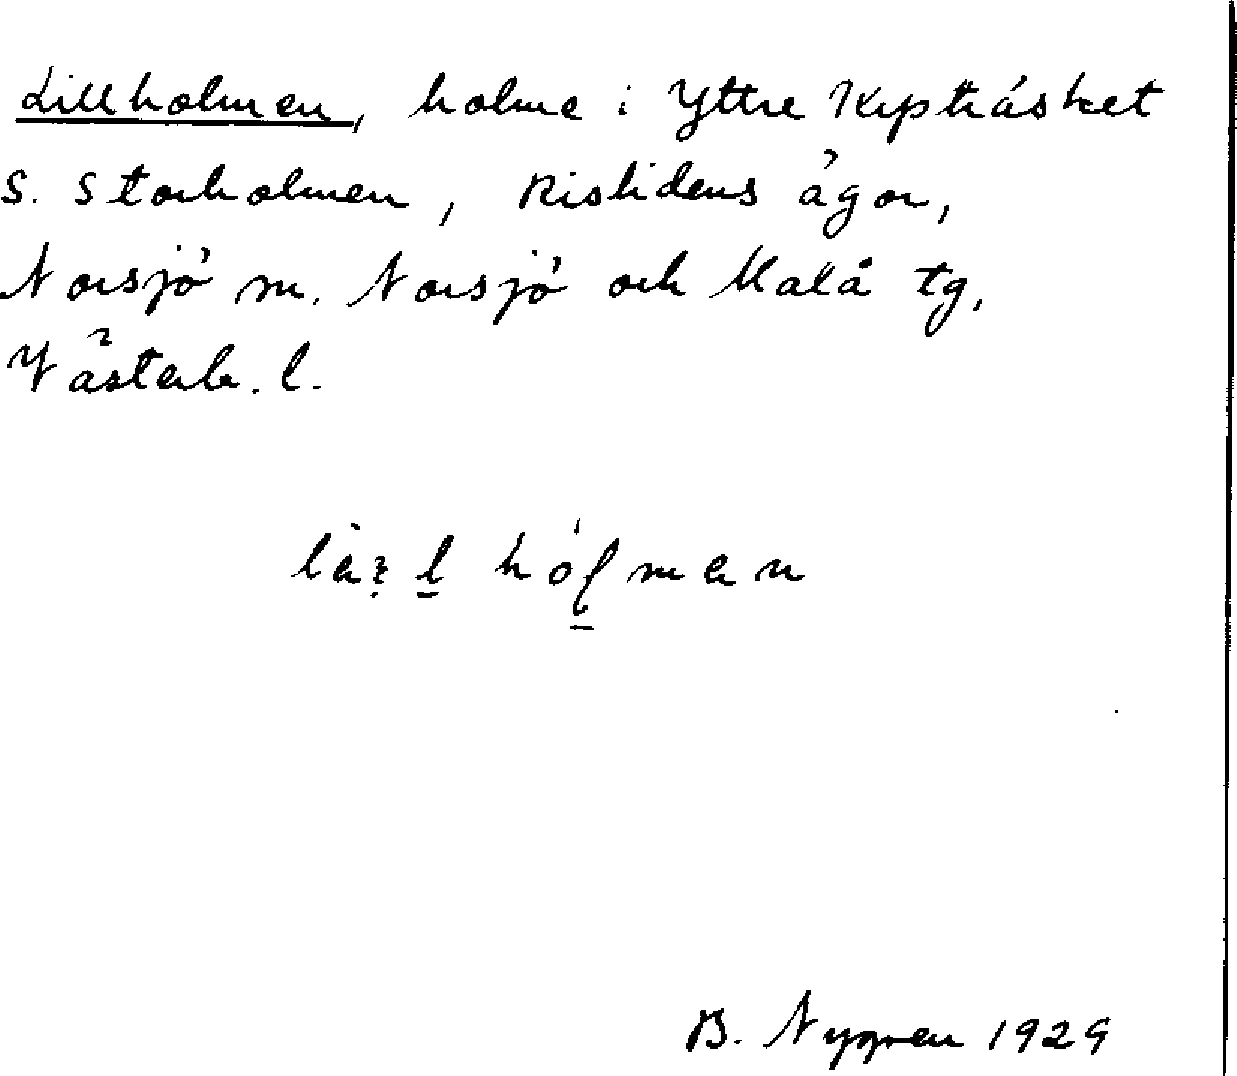 Lillholmen, holme i Yttre Kypträsket
S. Storholmen, Rislidens ägor,
Norsjö sn. Norsjö och Malå tg,
Västerb. l.
B. Nygren 1929